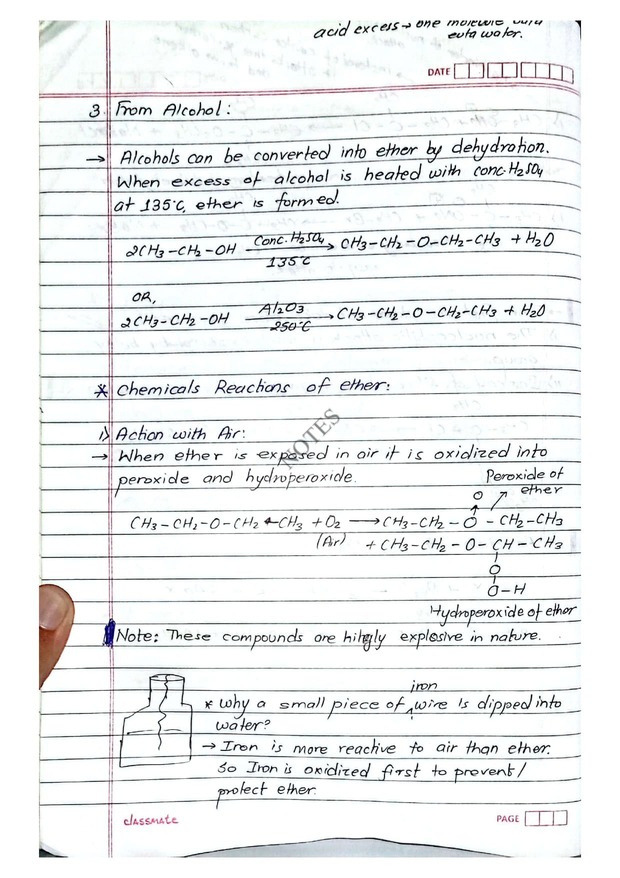 acid excess → one molecule
euta water.
DATE
3. From Alcohol:
→ Alcohols can be converted into ether by dehydration.
When excess of alcohol is heated with conc. H2SO4
at 135°C, ether is formed.
2CH3-CH2-OH Conc. H2SO4 → 135°C CH3-CH2-O-CH2-CH3 + H2O
OR,
2CH3-CH2-OH Al2O3 → 250°C CH3-CH2-O-CH2-CH3 + H2O
* Chemicals Reactions of ether:
i) Action with Air:
→ When ether is exposed in air it is oxidized into
peroxide and hydroperoxide.
NOTES
Peroxide of
ether
O
CH3-CH2-O-CH2-CH3 + O2 → CH3-CH2-O-CH2-CH3
(Air) + CH3-CH2-O-CH-CH3
O
O-H
Hydroperoxide of ether
Note: These compounds are hihgly explosive in nature.
* Why a small piece of iron wire is dipped into
water?
→ Iron is more reactive to air than ether.
So Iron is oxidized first to prevent/
protect ether.
classmate
PAGE